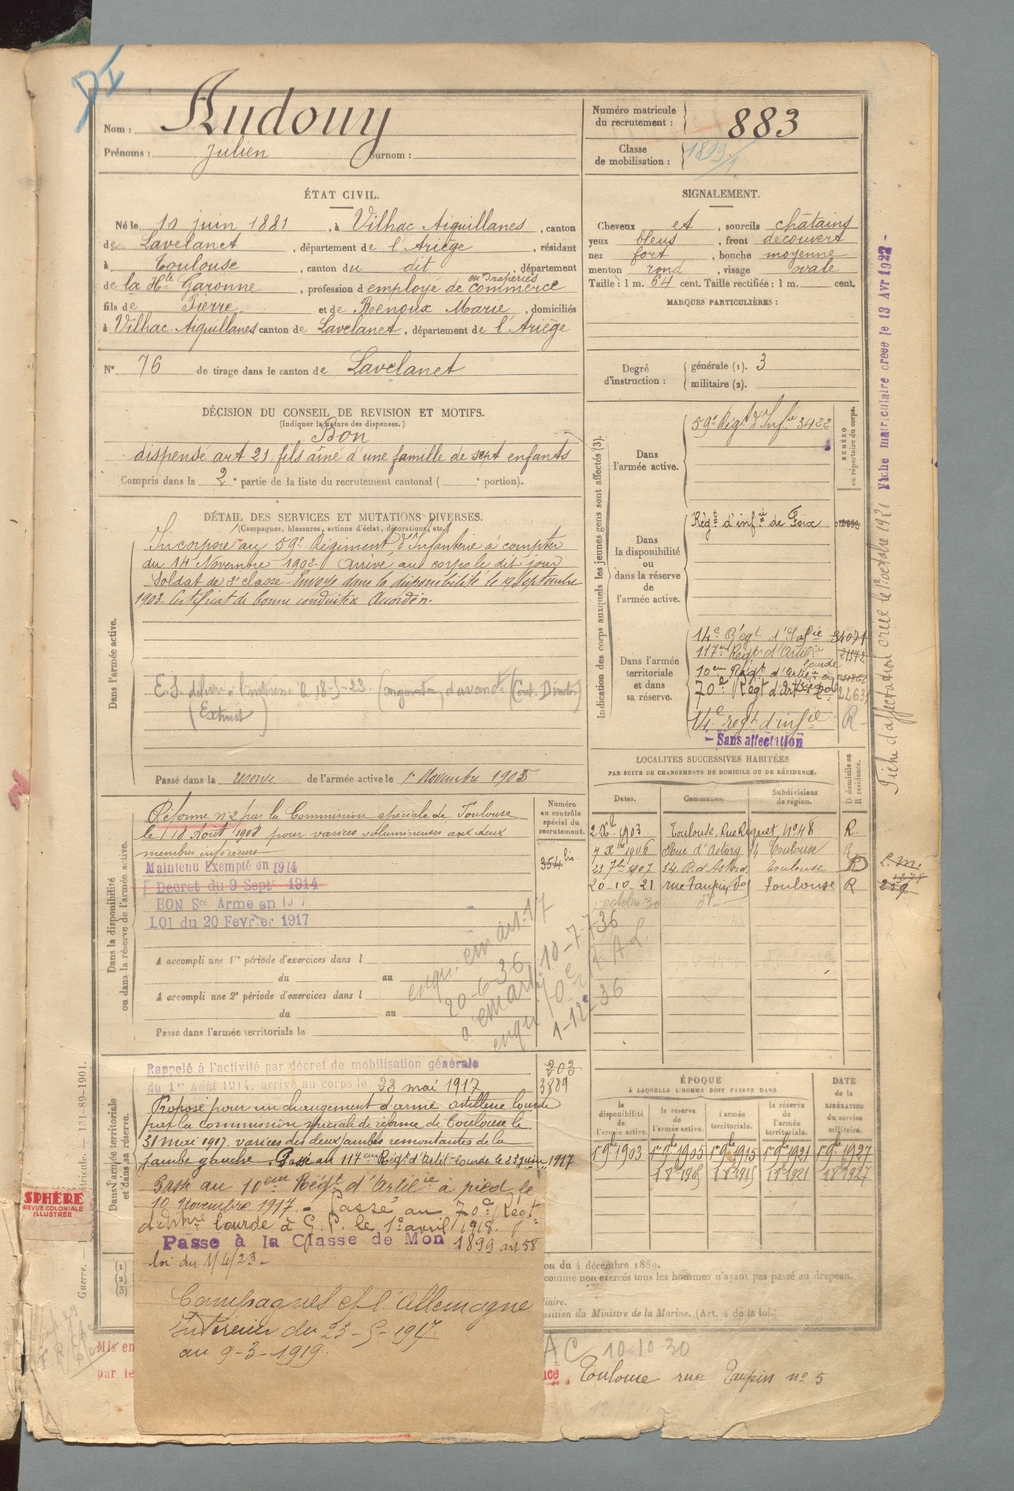 Nom : Audouy
Prénoms : Julien Surnom :
Numéro matricule du recrutement : 883
Classe de mobilisation : 1899
ÉTAT CIVIL.
Né le 10 juin 1881, à Vilhac Aiguillanes, canton
de Lavelanet, département de l'Ariège, résidant
à Toulouse, canton du dit, département
de la Hte Garonne, profession d employé de commerce en draperies
fils de Pierre et de Roenoux Marie, domiciliés
à Vilhac Aiguillanes canton de Lavelanet, département de l'Ariège
N° 76 de tirage dans le canton de Lavelanet
SIGNALEMENT.
Cheveux et, sourcils châtains
yeux bleus, front découvert
nez fort, bouche moyenne
menton rond, visage ovale
Taille : 1 m. 64 cent. Taille rectifiée : 1 m. cent.
MARQUES PARTICULIÈRES :
Degré d'instruction : générale (1). 3
militaire (2).
DÉCISION DU CONSEIL DE REVISION ET MOTIFS.
(Indiquer la nature des dispenses.)
Bon
dispensé art 21 fils aîné d'une famille de sept enfants
Compris dans la 2e partie de la liste du recrutement cantonal ( e portion).
DÉTAIL DES SERVICES ET MUTATIONS DIVERSES.
(Campagnes, blessures, actions d'éclat, décorations, etc.)
Dans l'armée active.
Incorporé au 59e Régiment d'Infanterie à compter
du 14 Novembre 1902. Arrivé au corps le dit jour
Soldat de 2e classe. Envoyé dans la disponibilité le 19 Septembre
1903. Certificat de bonne conduite Accordé.
E.S. délivré à l'intéressé le 18-5-23.
(Extrait)
Passé dans la réserve de l'armée active le 1er Novembre 1905
Indication des corps auxquels les jeunes gens sont affectés (3).
NUMÉRO au répertoire du corps.
Dans l'armée active.
59e Régt d'Infie 3422
Dans la disponibilité ou dans la réserve de l'armée active.
Régt d'infie de Foix
Dans l'armée territoriale et dans sa réserve.
14e Régt d'Infie 34071
117e Régt d'Artie
10em Régt d'Artie à pied
70e Régt d'Art
14e regt d'infie R
- Sans affectation
Fiche matriculaire créée le 13 Avr 1922 -
Fiche d'affectation créée le 1er octobre 1921
LOCALITÉS SUCCESSIVES HABITÉES
PAR SUITE DE CHANGEMENTS DE DOMICILE OU DE RÉSIDENCE.
Dates. Communes. Subdivisions de région. D domicile ou R résidence.
2 Xbre 1903 Toulouse, Rue Riquet, N° 48 R.
7 Xbre 1906 Rue d'Astorg 14 Toulouse R
23 7bre 1907 14 R. d'Astorg Toulouse D
20-10-21 rue Taupin do Toulouse R
octobre 30 dt
Dans la disponibilité ou dans la réserve de l'armée active.
Numéro au contrôle spécial du recrutement.
354 bis
Réformé n° 2 par la Commission spéciale de Toulouse
le 10 Août 1908 pour varices volumineuses aux deux
membres inférieurs
Maintenu Exempté en 1914
Décret du 9 Sept 1914
BON Sce Armé en 1917
LOI du 20 Fevrier 1917
A accompli une 1re période d'exercices dans l
du au
A accompli une 2e période d'exercices dans l
du au
Passé dans l'armée territoriale le
20-6-36
10-7-36
1-12-36
Dans l'armée territoriale et dans sa réserve.
Rappelé à l'activité par décret de mobilisation générale
du 1er Août 1914, arrivé au corps le 23 mai 1917
203
3889
Proposé pour un changement d'arme artillerie lourde
par la commission spéciale de réforme de Toulouse le
31 mai 1917. varices des deux jambes remontantes de la
jambe gauche. Passé au 117em Régt d'Artil-lourde le 23 juin 1917
Passé au 10eme Régt d'Artilie à pied le
10 Novembre 1917. - Passé au 70e Régt
d'Artie lourde à G.P. le 1er avril 1918.
Passé à la Classe de Mon 1899 art 58
loi du 1/4/23-
Campagnes et l'Allemagne
Intérieur du 23-5-1917
au 9-3-1919.
ÉPOQUE
À LAQUELLE L'HOMME DOIT PASSER DANS
la disponibilité de l'armée active. la réserve de l'armée active. l'armée territoriale. la réserve de l'armée territoriale.
DATE de la LIBÉRATION du service militaire.
1 9bre 1903 1 9bre 1905 1 9bre 1915 1 9bre 1921 1 9bre 1927
ion du 4 décembre 1889.
comme non exercés tous les hommes n'ayant pas passé au drapeau.
position du Ministre de la Marine. (Art. 4 de la loi.)
AC 10.10.30
Toulouse rue Taupin n° 5
Mis en
par le
SPHÈRE
REVUE COLONIALE ILLUSTRÉE
Guerre.
131-89-1901.